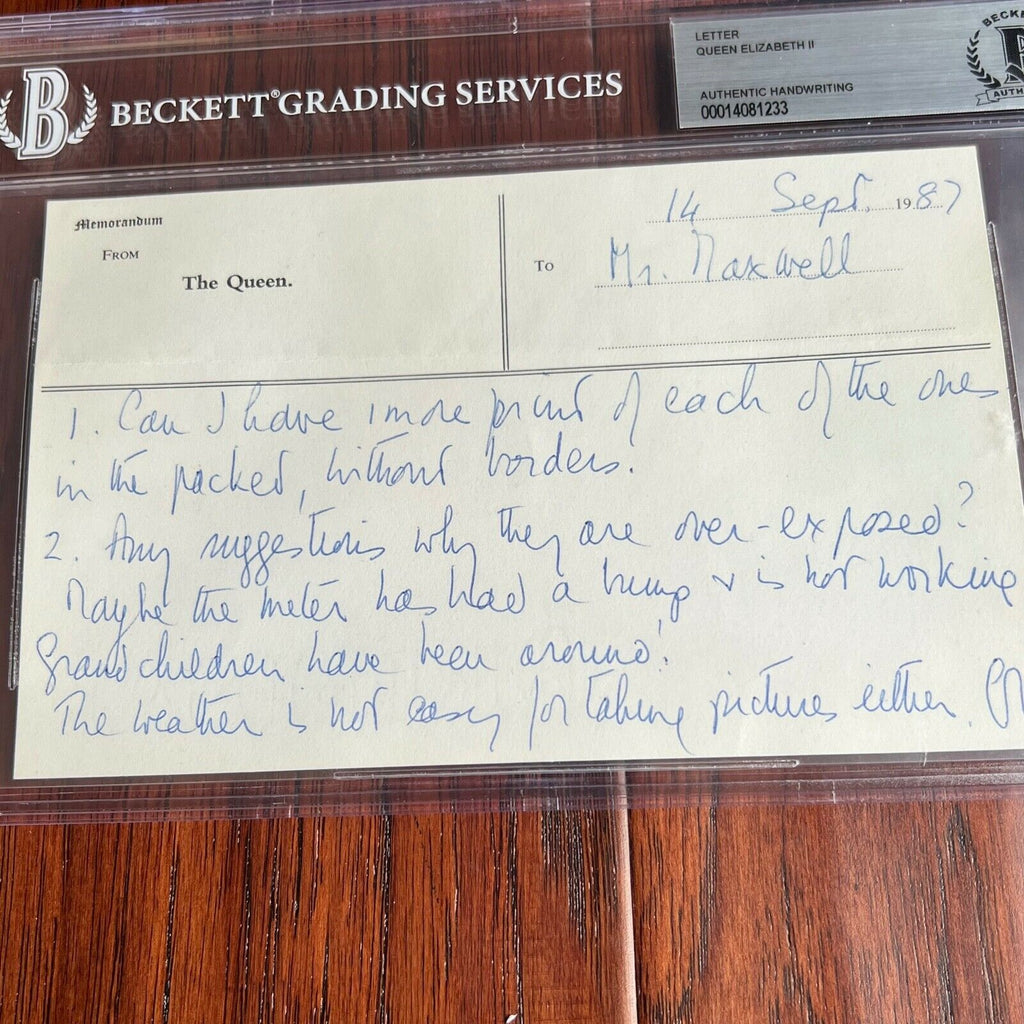 BECKETT® GRADING SERVICES
LETTER
QUEEN ELIZABETH II
AUTHENTIC HANDWRITING
00014081233
BECK
AUTH
B
Memorandum
FROM
The Queen.
14 Sept. 1987
To Mr. Maxwell
1. Can I have 1 more print of each of the ones
in the packet, without borders.
2. Any suggestions why they are over-exposed?
Maybe the meter has had a bump & is not working
Grandchildren have been around!
The weather is not easy for taking pictures either.